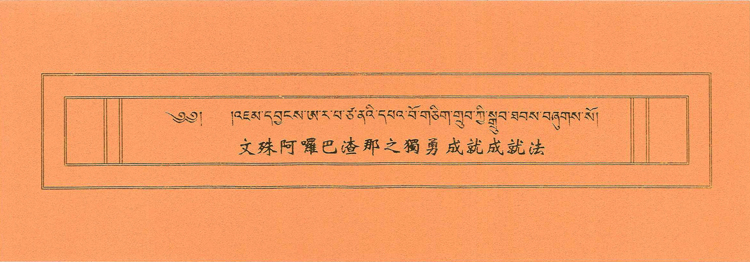 ༄༅། །འཇམ་དབྱངས་ཨ་ར་པ་ཙ་ནའི་དཔའ་བོ་གཅིག་གྲུབ་ཀྱི་སྒྲུབ་ཐབས་བཞུགས་སོ།
文殊阿囉巴渣那之獨勇成就成就法